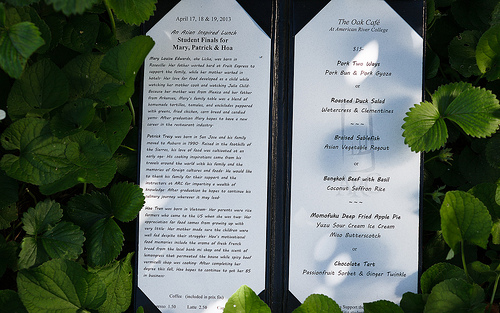 April 17, 18 & 19, 2013
An Asian Inspired Lunch
Student Finals for
Mary, Patrick & Hoa
Mary Louise Edwards, aka Lulee, was born in
Roseville. Her father worked hard at Fresh Express to
support the family, while her mother worked in
hotels. Her love for food developed as a child while
watching her mother cook and watching Julia Child.
Because her mother was from Mexico and her father
from Arkansas, Mary's family table was a blend of
homemade tortillas, tamales, and enchiladas paired
with greens, fried chicken, corn bread and candied
yams. After graduation Mary hopes to have a new
career in the restaurant industry.
Patrick Tracy was born in San Jose and his family
moved to Auburn in 1990. Raised in the foothills of
the Sierras, his love of food was cultivated at an
early age. His cooking inspirations come from his
travels around the world with his family and the
memories of foreign cultures and foods. He would like
to thank his family for their support and the
instructors at ARC for imparting a wealth of
knowledge. After graduation he hopes to continue his
culinary journey wherever it may lead.
Hoa Tran was born in Vietnam. Her parents were rice
farmers who came to the US when she was
appreciation for food comes from growing up with
very little. Her mother made sure the children were
well fed despite their struggles. Hoa's motivational
food memories include the aroma of fresh French
bread from the local bank mi shop and the scent of
lemongrass that permeated the house while spicy beef
vermicelli soup was cooking. After completing her
degree this fall, Hoa hopes to continue to get her BS
in business.
Coffee (included in prix fix)
1.50 Latte 2.50
The Oak Café
At American River College
$15
Pork Two Ways
Pork Bun & Pork Gyoza
or
Roasted Duck Salad
Watercress & Clementines
~~~
Braised Sablefish
Asian Vegetable Ragout
or
Bangkok Beef with Basil
Coconut Saffron Rice
~~~
Momofuku Deep Fried Apple Pie
Yuzu Sour Cream Ice Cream
Miso Butterscotch
or
Chocolate Tart
Passionfruit Sorbet & Ginger Twinkle
Support the